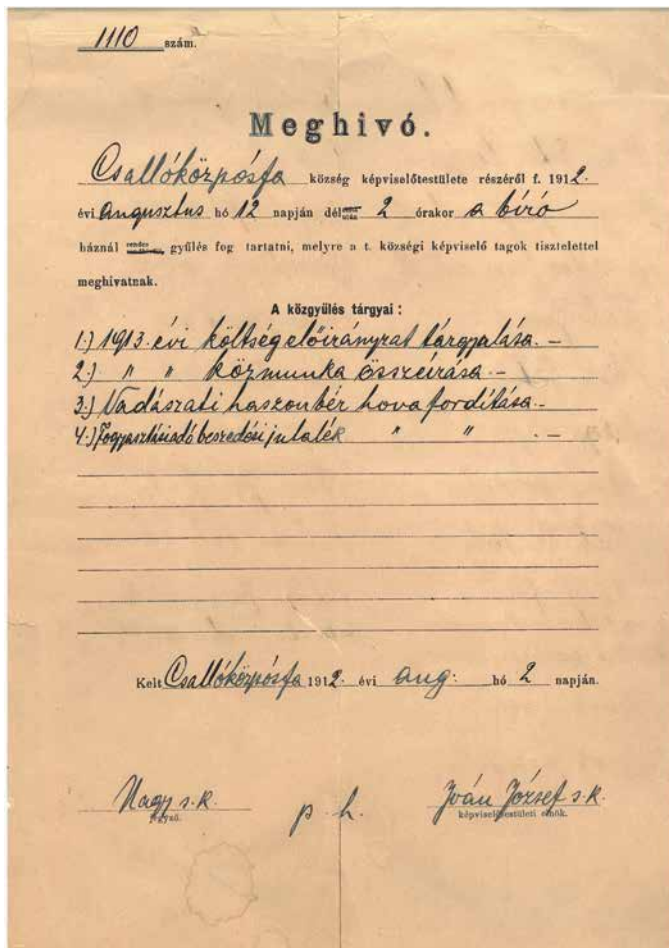 1110 szám.
Meghivó.
Csallóközpósfa község képviselőtestülete részéről f. 1912.
évi augusztus hó 12 napján dél után 2 órakor a bíró
háznál rendes gyűlés fog tartatni, melyre a t. községi képviselő tagok tisztelettel
meghivatnak.
A közgyűlés tárgyai :
1.) 1913. évi költségelőirányzat tárgyalása. –
2.) " " közmunka összeírása. –
3.) Vadászati haszonbér hova fordítása. –
4.) Fogyasztásiadó beszedési jutalék " " . –
Kelt Csallóközpósfa 1912. évi aug: hó 2 napján.
Nagy s.k. p. h. Iván József s.k.
jegyző. képviselőtestületi elnök.